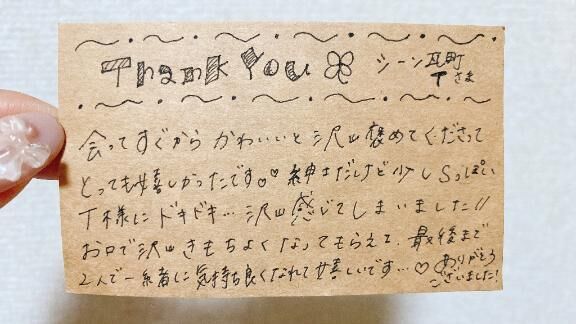 Thank You シーン瓦町
Tさま
会ってすぐから かわいいと 沢山 褒めてくださって
とっても嬉しかったです♡♡ 紳士だけど少しSっぽい
T様に ドキドキ… 沢山感じてしまいました!!
お口で沢山きもちよくなってもらえて、最後まで
2人で一緒に気持ち良くなれて嬉しいです…♡ ありがとう
ございました!